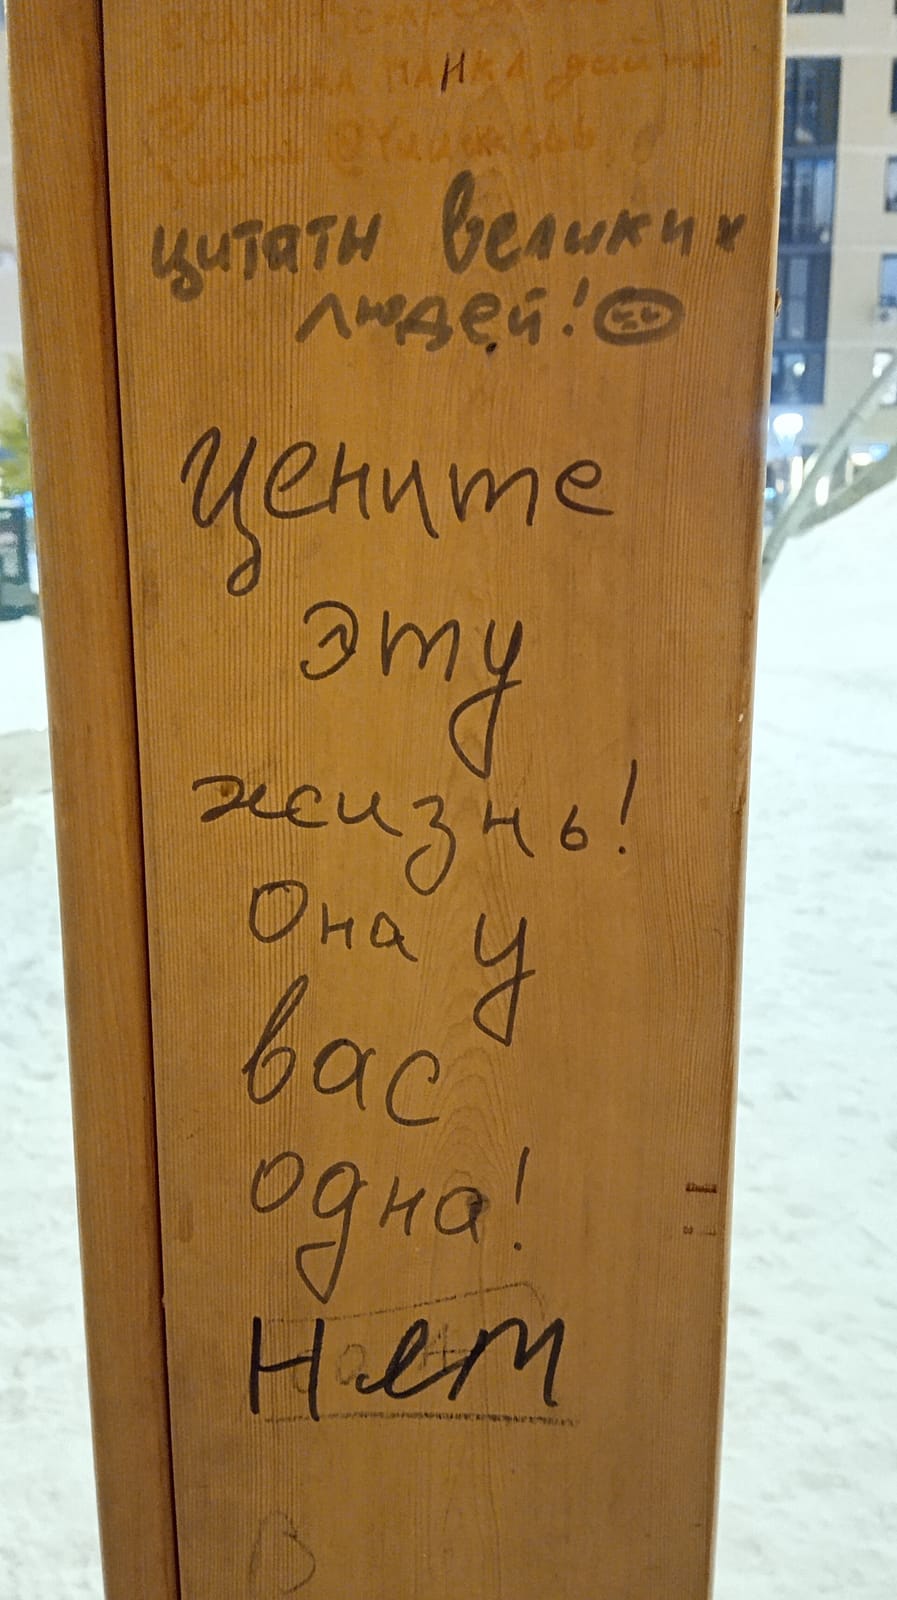 цитаты великих
людей!
Цените
эту
жизнь!
Она у
вас
одна!
Нет